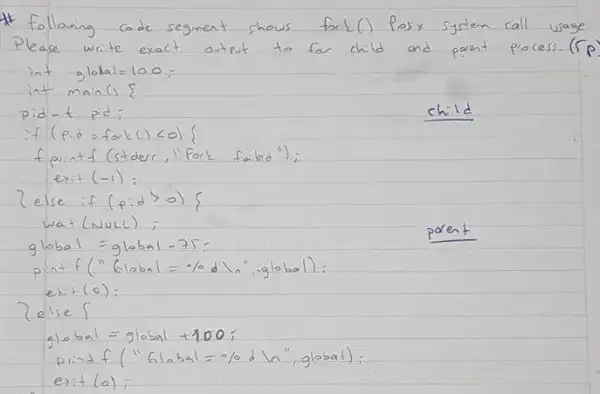 # following code segment shows fork() Posx system call usage
Please write exact output to for child and parent process. (5p)
int global=100;
int main() {
pid-t pid;
child
if (pid = fork() <0) {
fprintf (stderr, "Fork failed");
exit (-1);
} else if (pid > 0) {
wait (NULL) ;
parent
global = global - 75;
printf ("Global = % d \n", global);
exit (0);
} else {
global = global + 100;
printf ("Global = % d \n", global);
exit (0);